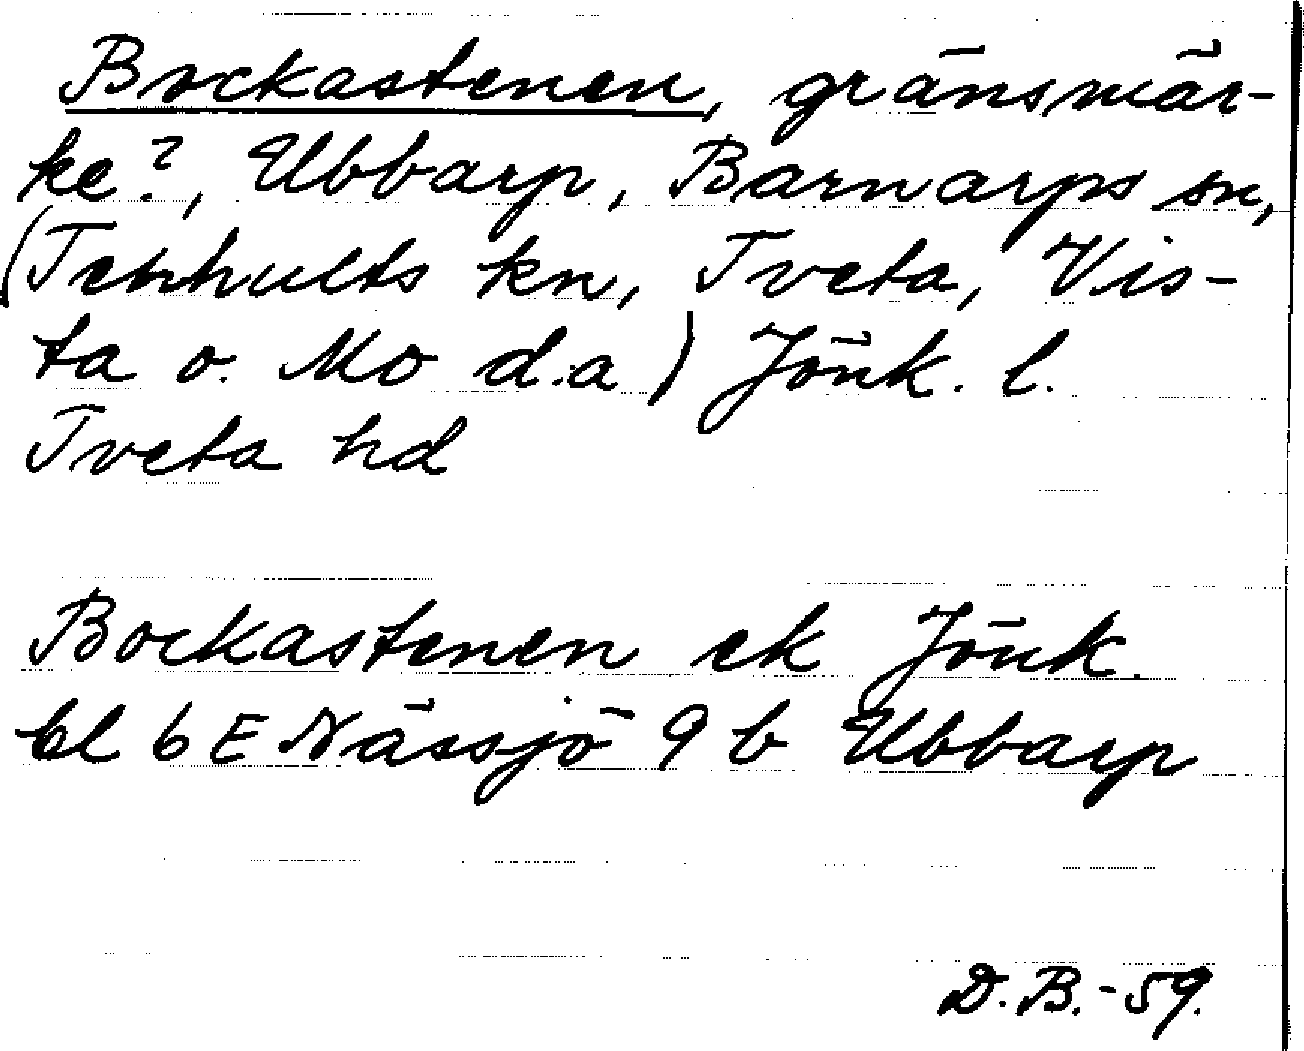 Bockastenen, gränsmär-
ke?, Ubbarp, Barnarps sn,
(Tenhults kn, Tveta, Vis-
ta o. Mo d.a) Jönk. l.
Tveta hd
Bockastenen ek Jönk.
bl 6 E Nässjö 9 b Ubbarp
D. B. - 59.